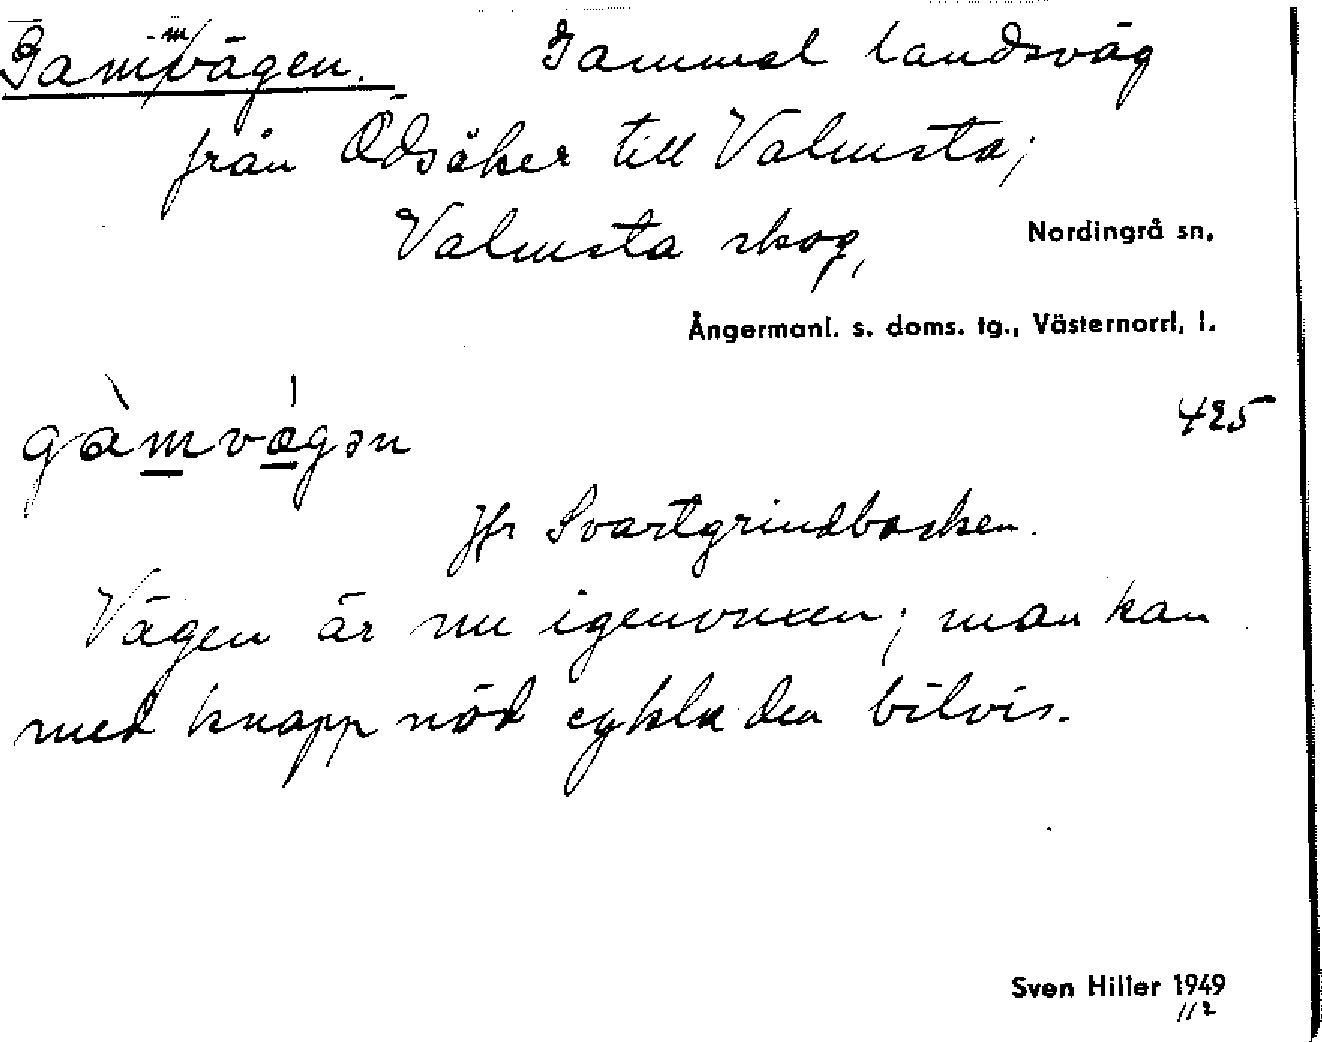 Gammvägen. Gammal landsväg
från Ödsåker till Valmsta;
Valmsta skog,
Nordingrå sn.
Ångermanl. s. doms. tg., Västernorrl. l.
gàmvǽgən
425
Jfr Svartgrindbacken.
Vägen är nu igenvuxen; man kan
med knapp nöd cykla den bitvis.
Sven Hiller 1949
11/2